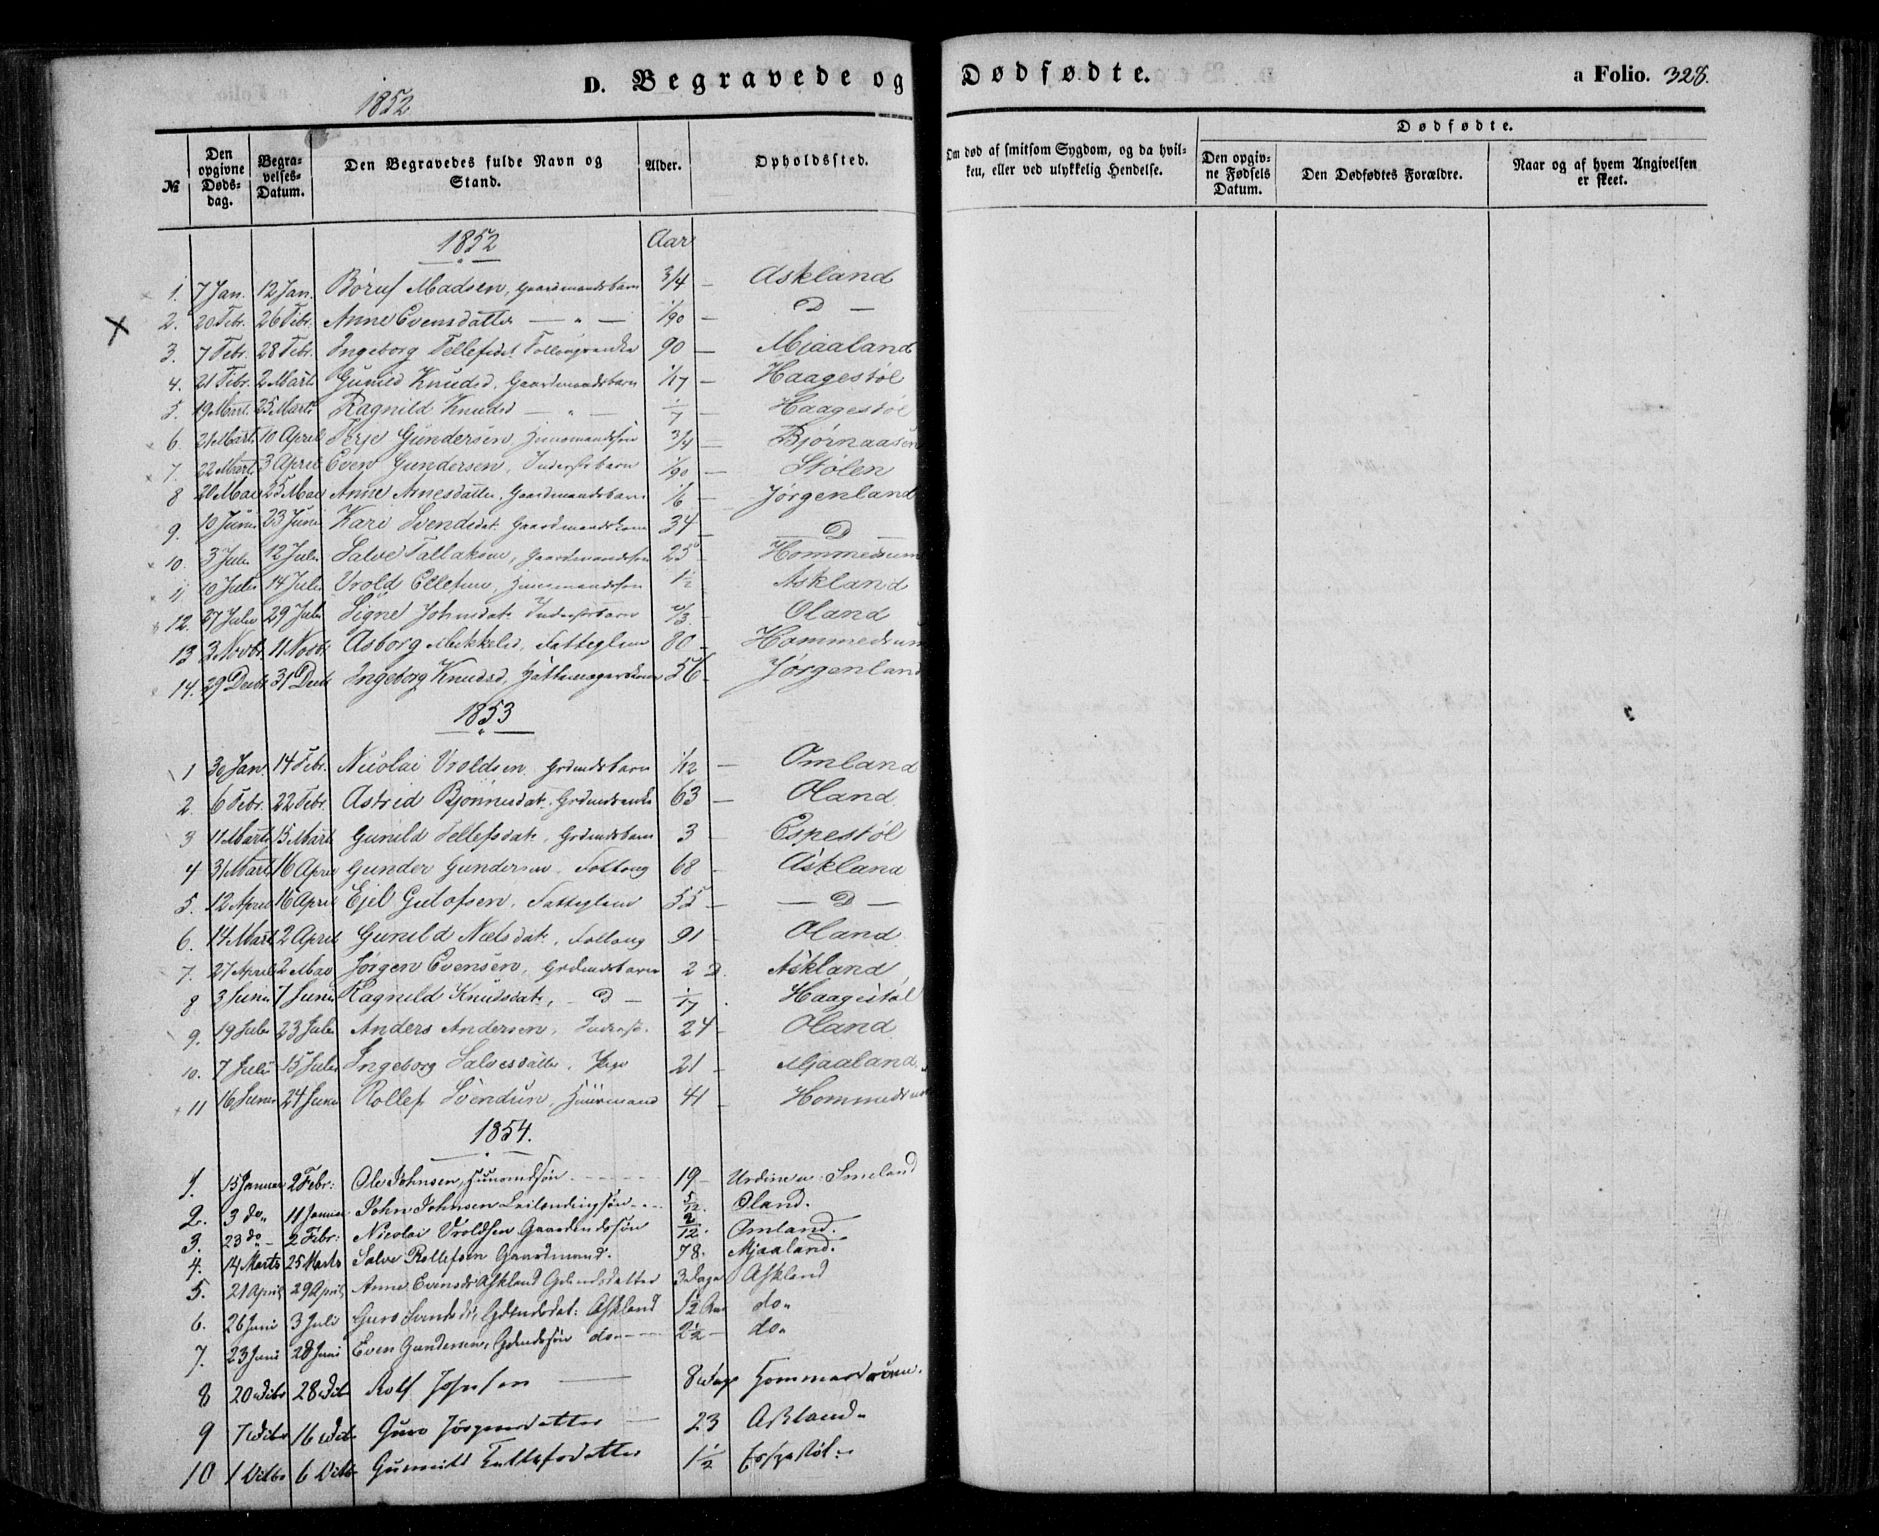 D. Begravede og Dødfødte.
a Folio. 328.
1852
Dødfødte.
№
Den opgivne Døds-dag.
Begra-velses-Datum.
Den Begravedes fulde Navn og Stand.
Alder.
Opholdssted.
Om død af smitsom Sygdom, og da hvil-ken, eller ved ulykkelig Hendelse.
Den opgiv-ne Fødsels Datum.
Den Dødfødtes Forældre.
Naar og af hvem Angivelsen er skeet.
1852 Aar
1. 7 Jan. 12 Jan. Børuf Madsen, Gaardmandsbarn 3/4 — Askland
2. 20 Febr. 26 Febr. Anne Evensdatter — " — 1/90 — D —
3. 7 Febr. 28 Febr. Ingeborg Tellefsdt. 90 — Mjaaland
4. 21 Febr. 2 Marts Gunild Knudsd, Gaardmandsbarn 1/17 — Haagestøl
5. 19 Mart. 25 Marts Ragnild Knudsd — " — 1/7 — Haagestøl
6. 21 Mart. 10 April Terje Gundersen, Huusmandssøn 3/4 — Bjørnaasen
7. 22 Mart. 3 April Even Gundersen, Inderstbarn 1/90 — Stølen
8 20 Mai 25 Mai Anne Arnesdatter, Gaardmandsbarn 1/6 — Jørgenland
9. 10 Juni 23 Juni Kari Svendsdat. Gaardmandskone 34 — D —
10. 3 Juli 12 Juli Salve Tallaksen, Gaardmandssøn 25 — Hommedrum
11 10 Juli 14 Juli Vrold Ellefsen, Huusmandssøn 1/2 — Askland
12. 27 Juli 29 Juli Signe Johnsdat. Inderstbarn — Oland
13 3 Novb. 11 Novb. Asborg Mikkelsd, Fattiglem 80 — Hommedrum
14. 29 Decb. 31 Decb. Ingeborg Knudsd, 56 — Jørgenland
1853
1 30 Jan. 14 Febr. Nicolai Vroldsen Grdmdsbarn 1/12 — Omland
2. 6 Febr. 22 Febr. Astrid Bjønnesdat. Grdmdsenke 63 — Oland
3 11 Marts 15 Marts Gunild Tellefsdat. Grdmdsbarn 3 — Espestøl
4 31 Marts 16 April Gunder Gundersen, Follaug 68 — Askland
5. 12 April 16 April Ejel Gulofsen, Fattiglem 55 — — D —
6. 14 Mart 2 April Gunild Nielsdat., Follaug 91 — Oland
7. 27 April 2 Mai Jørgen Evensen, Grdmdsbarn 2 D. Askland
8 3 Juni 7 Juni Ragnild Knudsdat., — D — 1/17 . Haagestøl
9. 19 Juli 23 Juli Anders Andersen, Inderst. 24 — Oland
10. 7 Juli 15 Juli Ingeborg Salvesdatter, Pige 21 — Mjaaland
11 16 Juni 24 Juni Rollef Svendsen, Huusmand 41 — Hommedrum
1854.
1. 15 Januar 2 Febr: Ole Johnsen, Huusmdsøn 19 — Smeland
2. 3 do" 11 Januar John Johnsen Leilændingsøn 5/12. Oland.
3. 23 do — 2 Febr: Nicolai Vroldsen Gaardmdssøn 2/12. Omland.
4. 14 Marts 25 Marts Salve Rollefsen Gaardmand. 78. Mjaaland.
5. 21 April 29 April Anne Evensd: Askland Gdmdsdatter 3 Dage Askland
6. 26 Juni 3 Juli Guro Svendsd:, Gdmdsdat: Askland 1 1/2 Aar do"
7. 23 Juni 28 Juni Even Gundersen, Gdmdssøn do 2 1/2 — do"
8 20 Decbr 28 Decbr Rolf Johnsen 8 Dage Hommedrum.
9 7 Decbr 16 Decbr Guro Jørgensdatter 23 Askland"
10 1 Octbr 6 Octbr Gunnild Tellefsdatter 1 1/2 Espestøl"